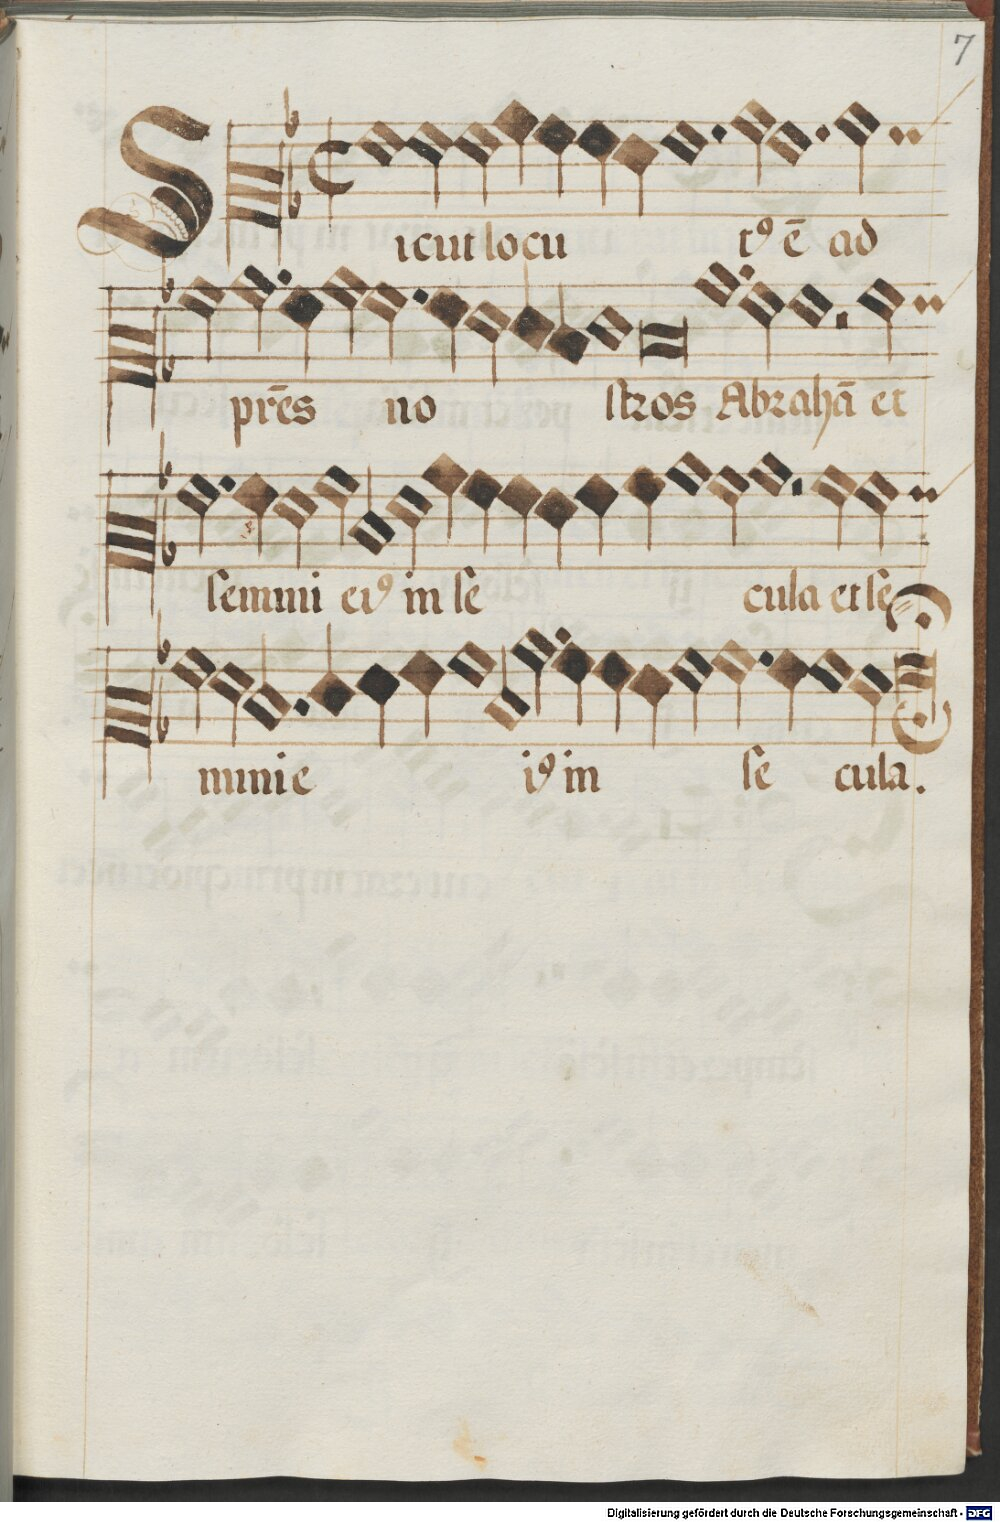 7
Sicut locu tꝰ ē ad
pr̄es no stros Abrahā et
semini eiꝰ in se cula et se
mini e iꝰ in se cula.
Digitalisierung gefördert durch die Deutsche Forschungsgemeinschaft - DFG